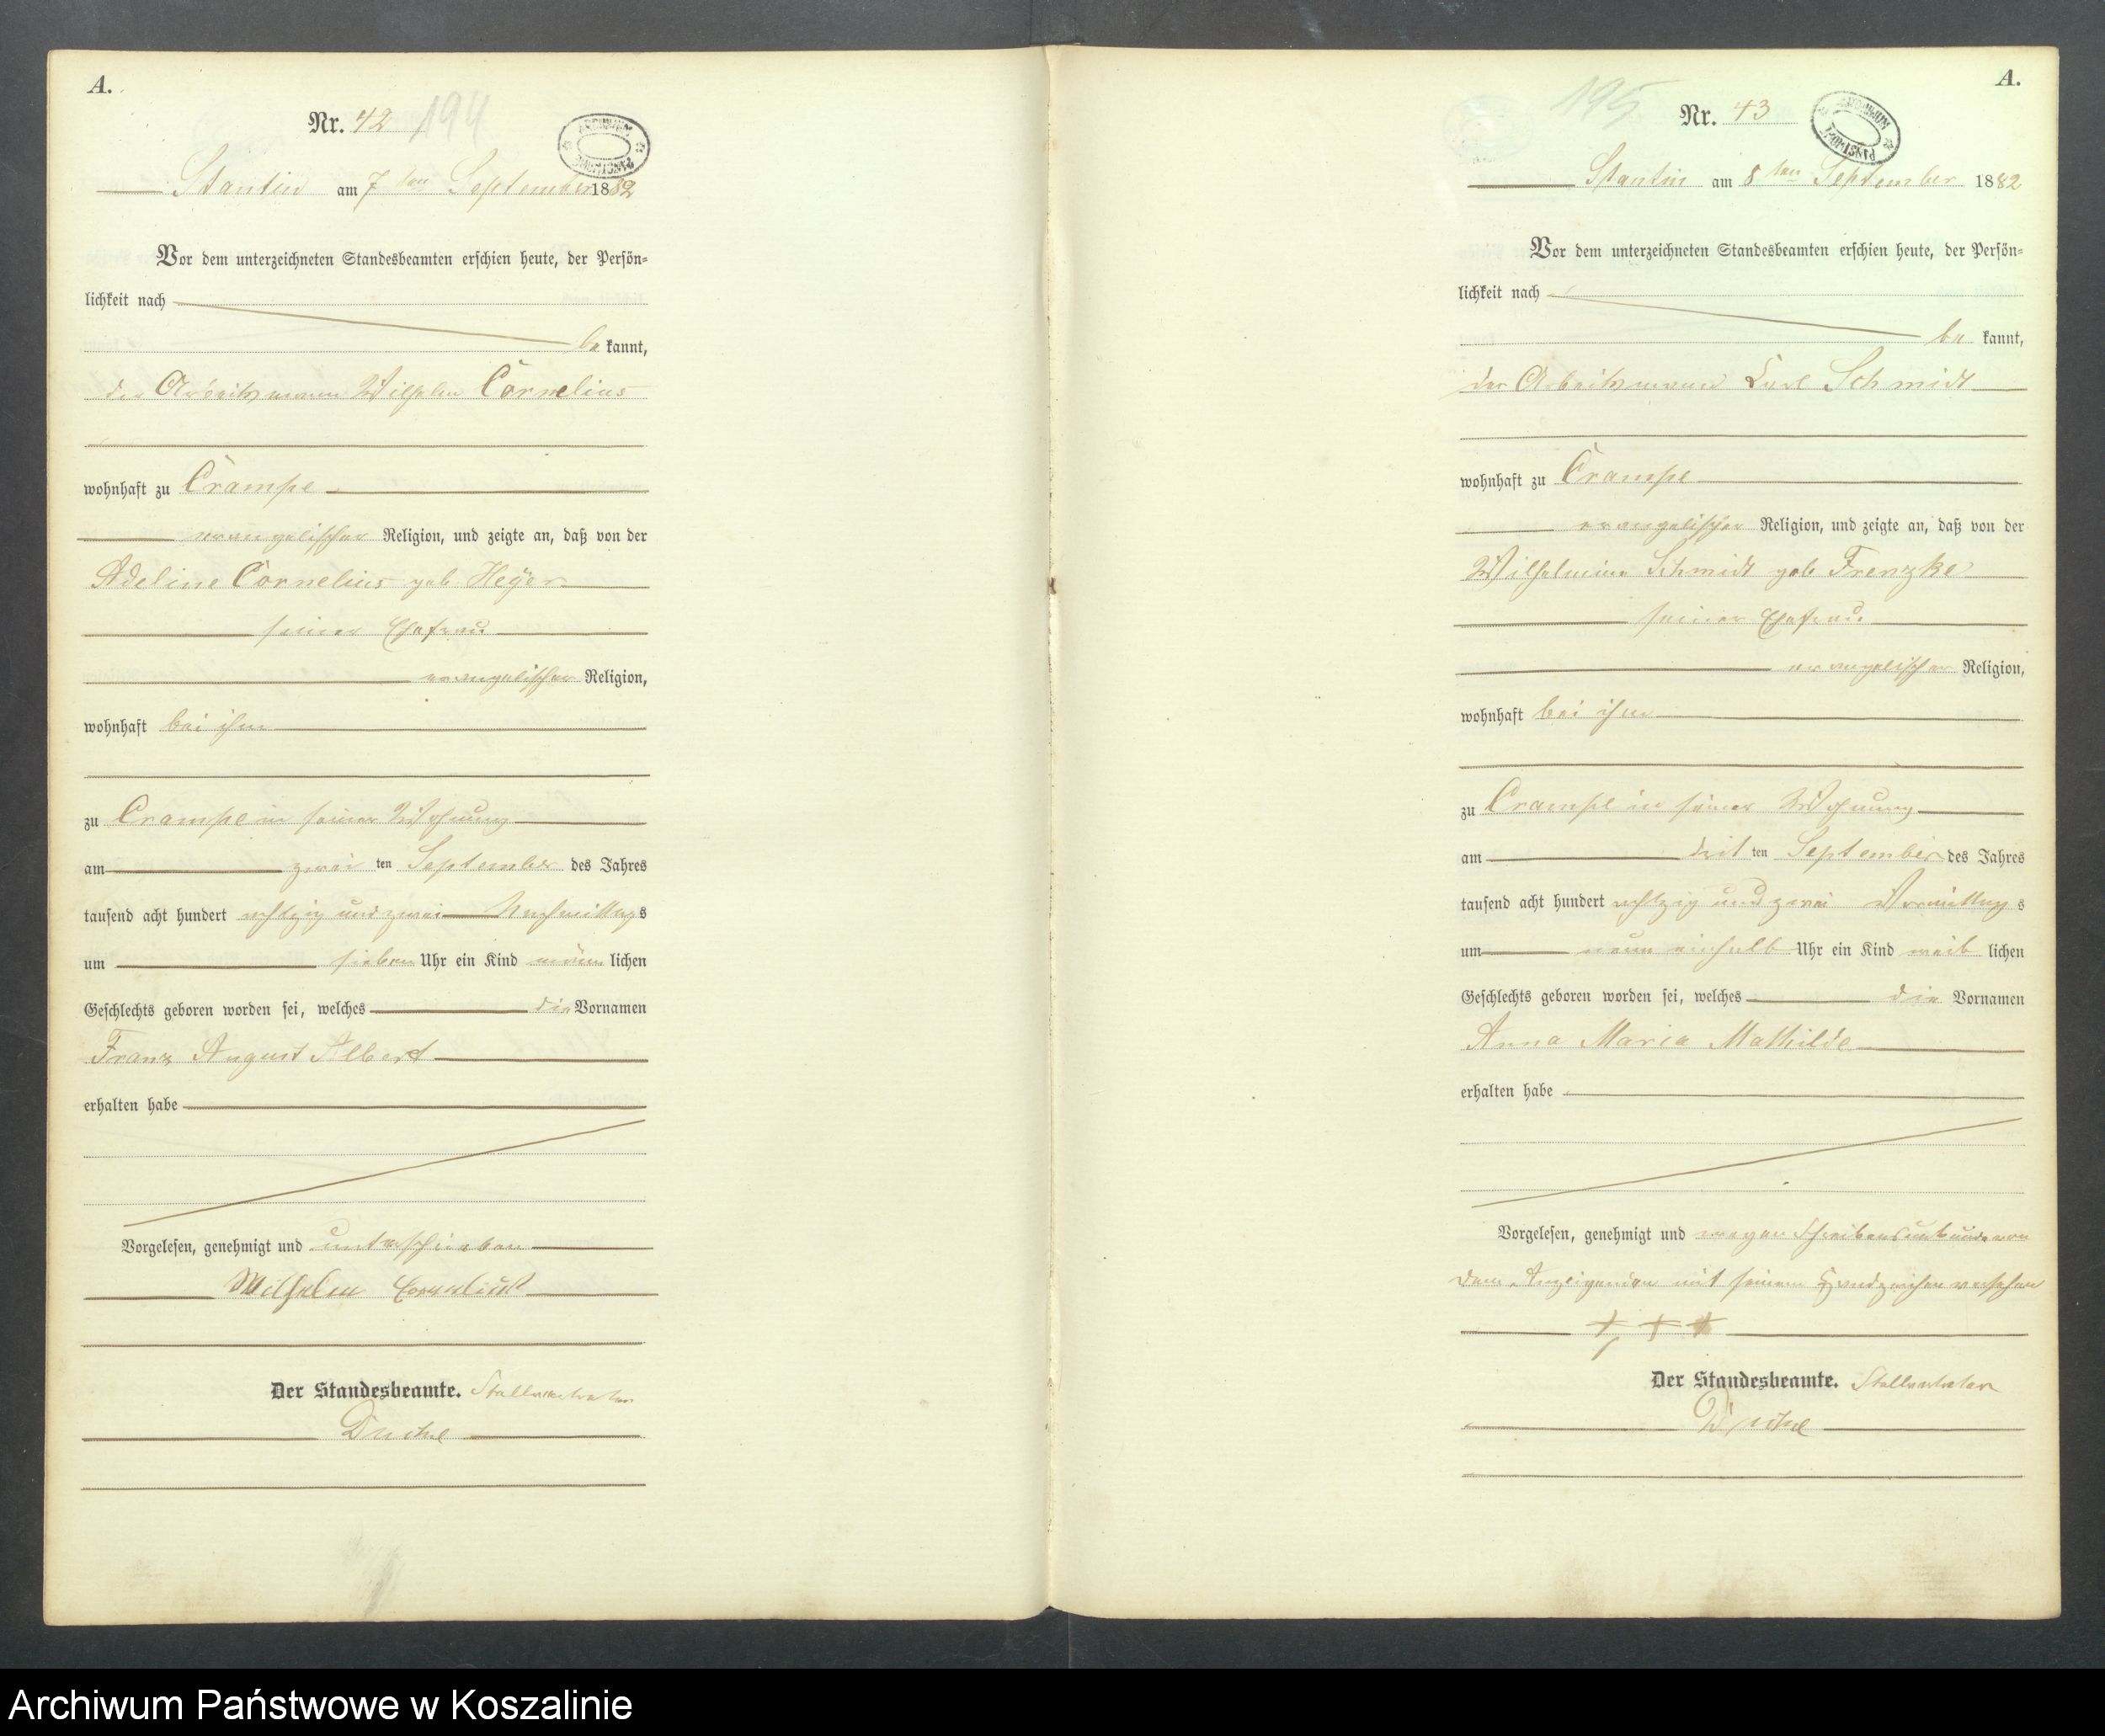 A.
Nr. 42 194
ARCHIWUM PAŃSTWOWE
Stantin am 7 ten September 1882
Vor dem unterzeichneten Standesbeamten erschien heute, der Persön-
lichkeit nach
be kannt,
der Arbeitsmann Wilhelm Cornelius
wohnhaft zu Crampe
evangelischer Religion, und zeigte an, daß von der
Adeline Cornelius geb Heyer
seiner Ehefrau
evangelischer Religion,
wohnhaft bei ihm
zu Crampe in seiner Wohnung
am zwei ten September des Jahres
tausend acht hundert achtzig und zwei Nachmittags
um sieben Uhr ein Kind männ lichen
Geschlechts geboren worden sei, welches die Vornamen
Franz August Albert
erhalten habe
Vorgelesen, genehmigt und unterschrieben
Wilhelm Cornelius
Der Standesbeamte. Stellvertreter
A.
195 Nr. 43
ARCHIWUM PAŃSTWOWE
Stantin am 8 ten September 1882
Vor dem unterzeichneten Standesbeamten erschien heute, der Persön-
lichkeit nach
be kannt,
der Arbeitsmann Carl Schmidt
wohnhaft zu Crampe
evangelischer Religion, und zeigte an, daß von der
Wilhelmine Schmidt geb Frenzke
seiner Ehefrau
evangelischer Religion,
wohnhaft bei ihm
zu Crampe in seiner Wohnung
am drit ten September des Jahres
tausend acht hundert achtzig und zwei Vormittags
um neun einhalb Uhr ein Kind weib lichen
Geschlechts geboren worden sei, welches die Vornamen
Anna Maria Mathilde
erhalten habe
Vorgelesen, genehmigt und wegen Schreibensunkunde von
dem Anzeigenden mit seinem Handzeichen versehen
+ + +
Der Standesbeamte. Stellvertreter
Archiwum Państwowe w Koszalinie